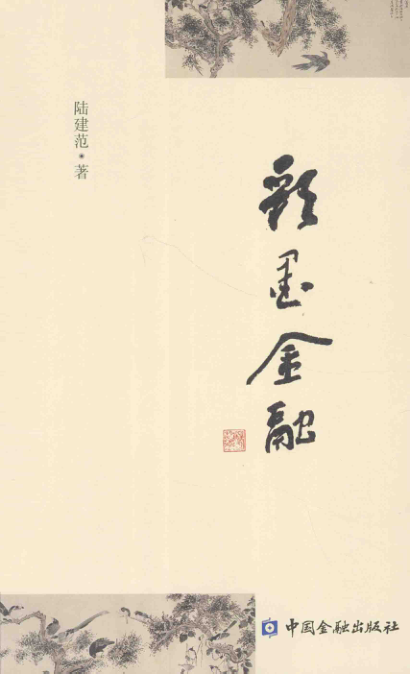 彩墨金融
陆建范·著
中国金融出版社